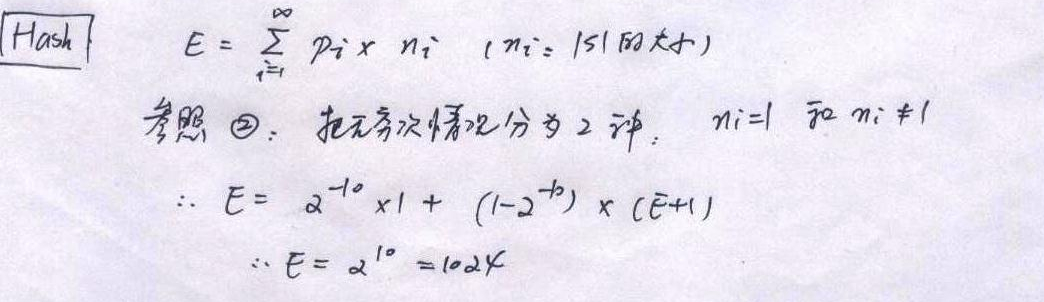 Hash E = ∑_{i=1}^{∞} Pi × ni (ni: |S| 的大小)
参照②: 把无穷次情况分为2种: ni=1 和 ni≠1
∴ E = 2^{-10} ×1 + (1-2^{-10}) × (E+1)
∴ E = 2^{10} = 1024